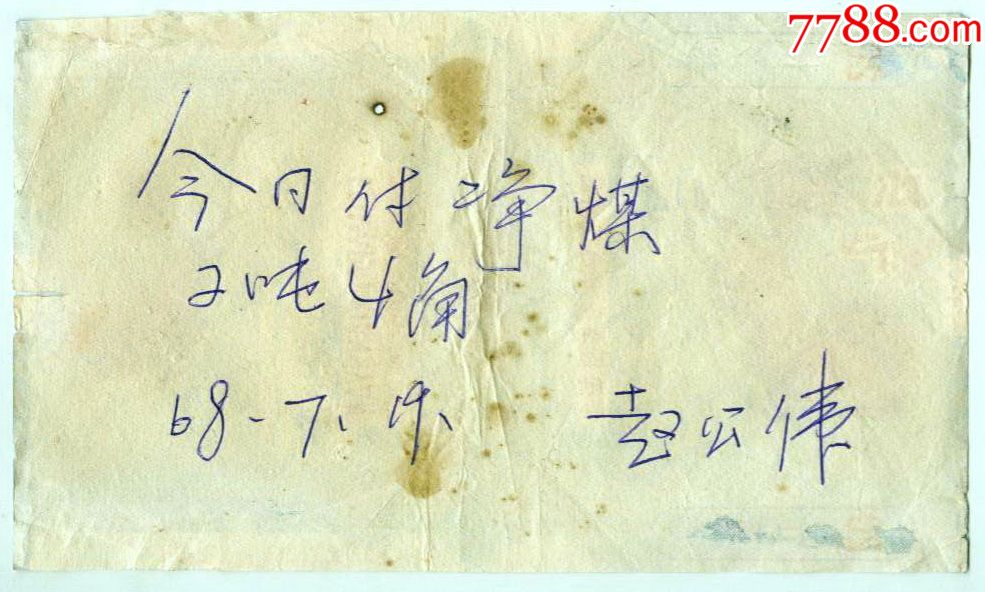 7788.com
今日付净煤
2吨4角
68-7、19、 赵公伟